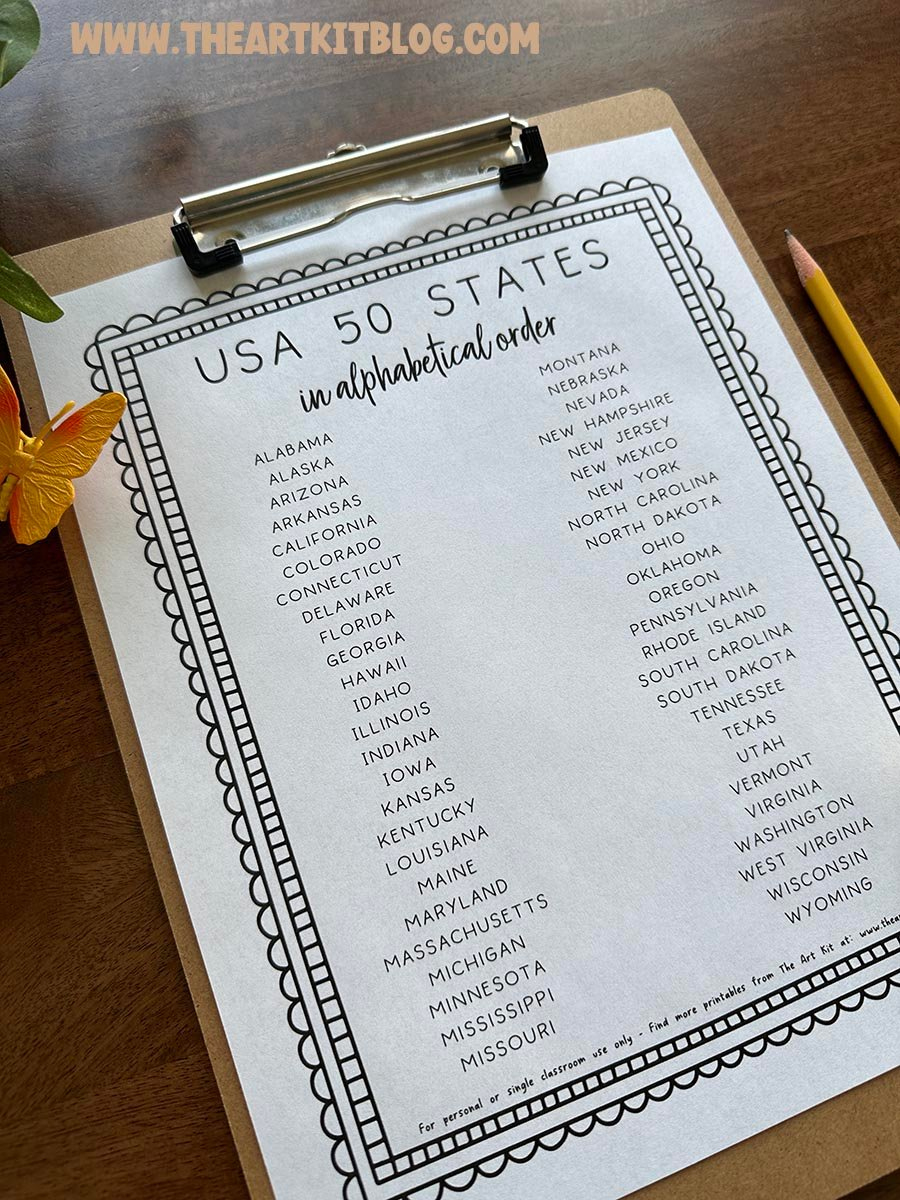 WWW.THEARTKITBLOG.COM
USA 50 STATES
in alphabetical order
ALABAMA
ALASKA
ARIZONA
ARKANSAS
CALIFORNIA
COLORADO
CONNECTICUT
DELAWARE
FLORIDA
GEORGIA
HAWAII
IDAHO
ILLINOIS
INDIANA
IOWA
KANSAS
KENTUCKY
LOUISIANA
MAINE
MARYLAND
MASSACHUSETTS
MICHIGAN
MINNESOTA
MISSISSIPPI
MISSOURI
MONTANA
NEBRASKA
NEVADA
NEW HAMPSHIRE
NEW JERSEY
NEW MEXICO
NEW YORK
NORTH CAROLINA
NORTH DAKOTA
OHIO
OKLAHOMA
OREGON
PENNSYLVANIA
RHODE ISLAND
SOUTH CAROLINA
SOUTH DAKOTA
TENNESSEE
TEXAS
UTAH
VERMONT
VIRGINIA
WASHINGTON
WEST VIRGINIA
WISCONSIN
WYOMING
For personal or single classroom use only - Find more printables from The Art Kit at: